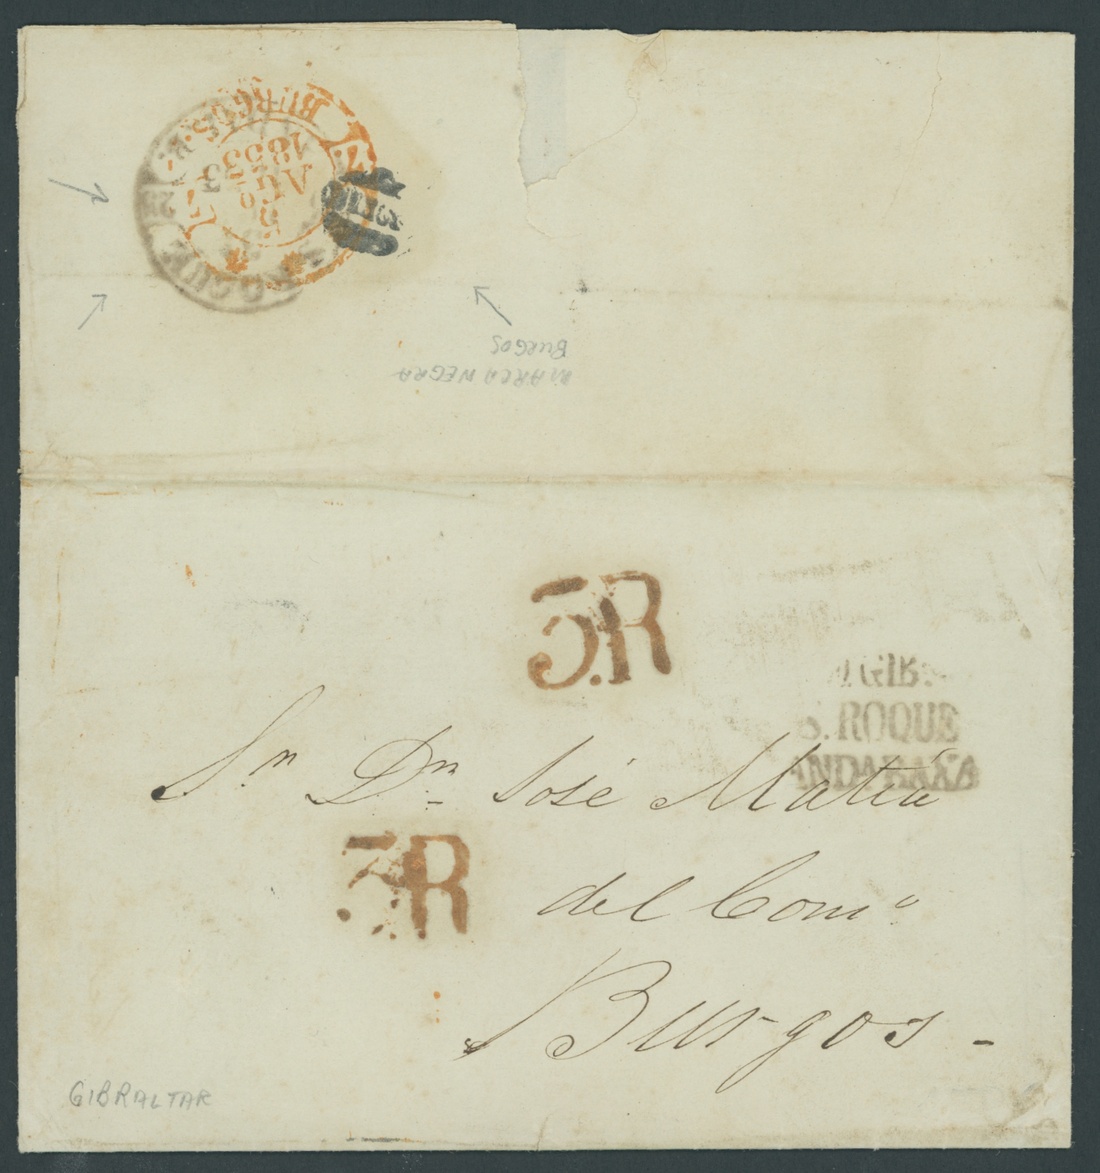 BURGOS.
5
AGo
1853
MARCA NEGRA
BURGOS
3.R
GIB
S. ROQUE
ANDA BAXA
Sr. Dn. José Matia
3R
del Como
Burgos -
GIBRALTAR